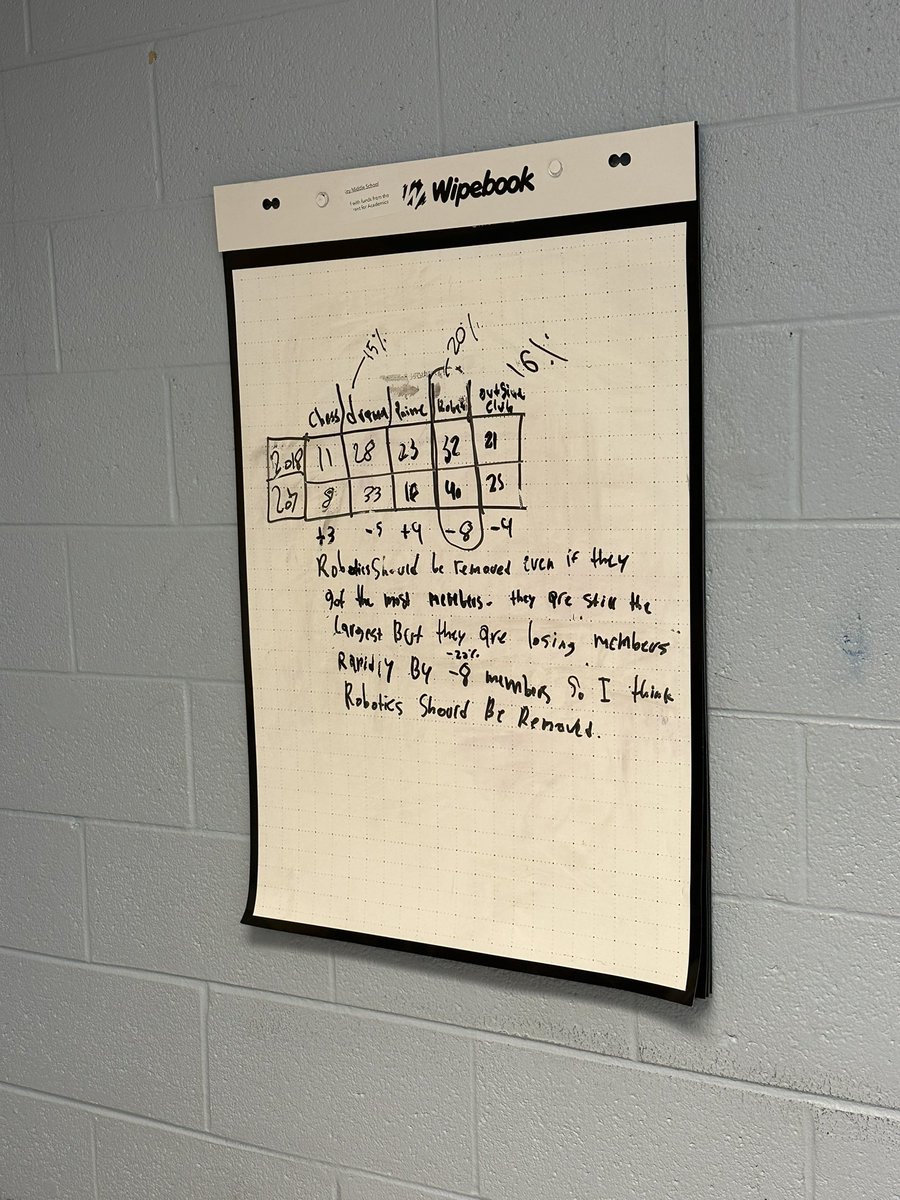 ics Middle School
with funds from the
for Academics
Wipebook
15% 20% 16%
Chess drama Anime Robot outside club
2018 11 28 23 32 21
207 8 33 18 40 25
+3 -5 +4 -8 -4
Robotics Should be removed even if they
got the most members. they are still the
largest But they are losing members
-20%
Rapidly By -8 members So I think
Robotics Should Be Removed.